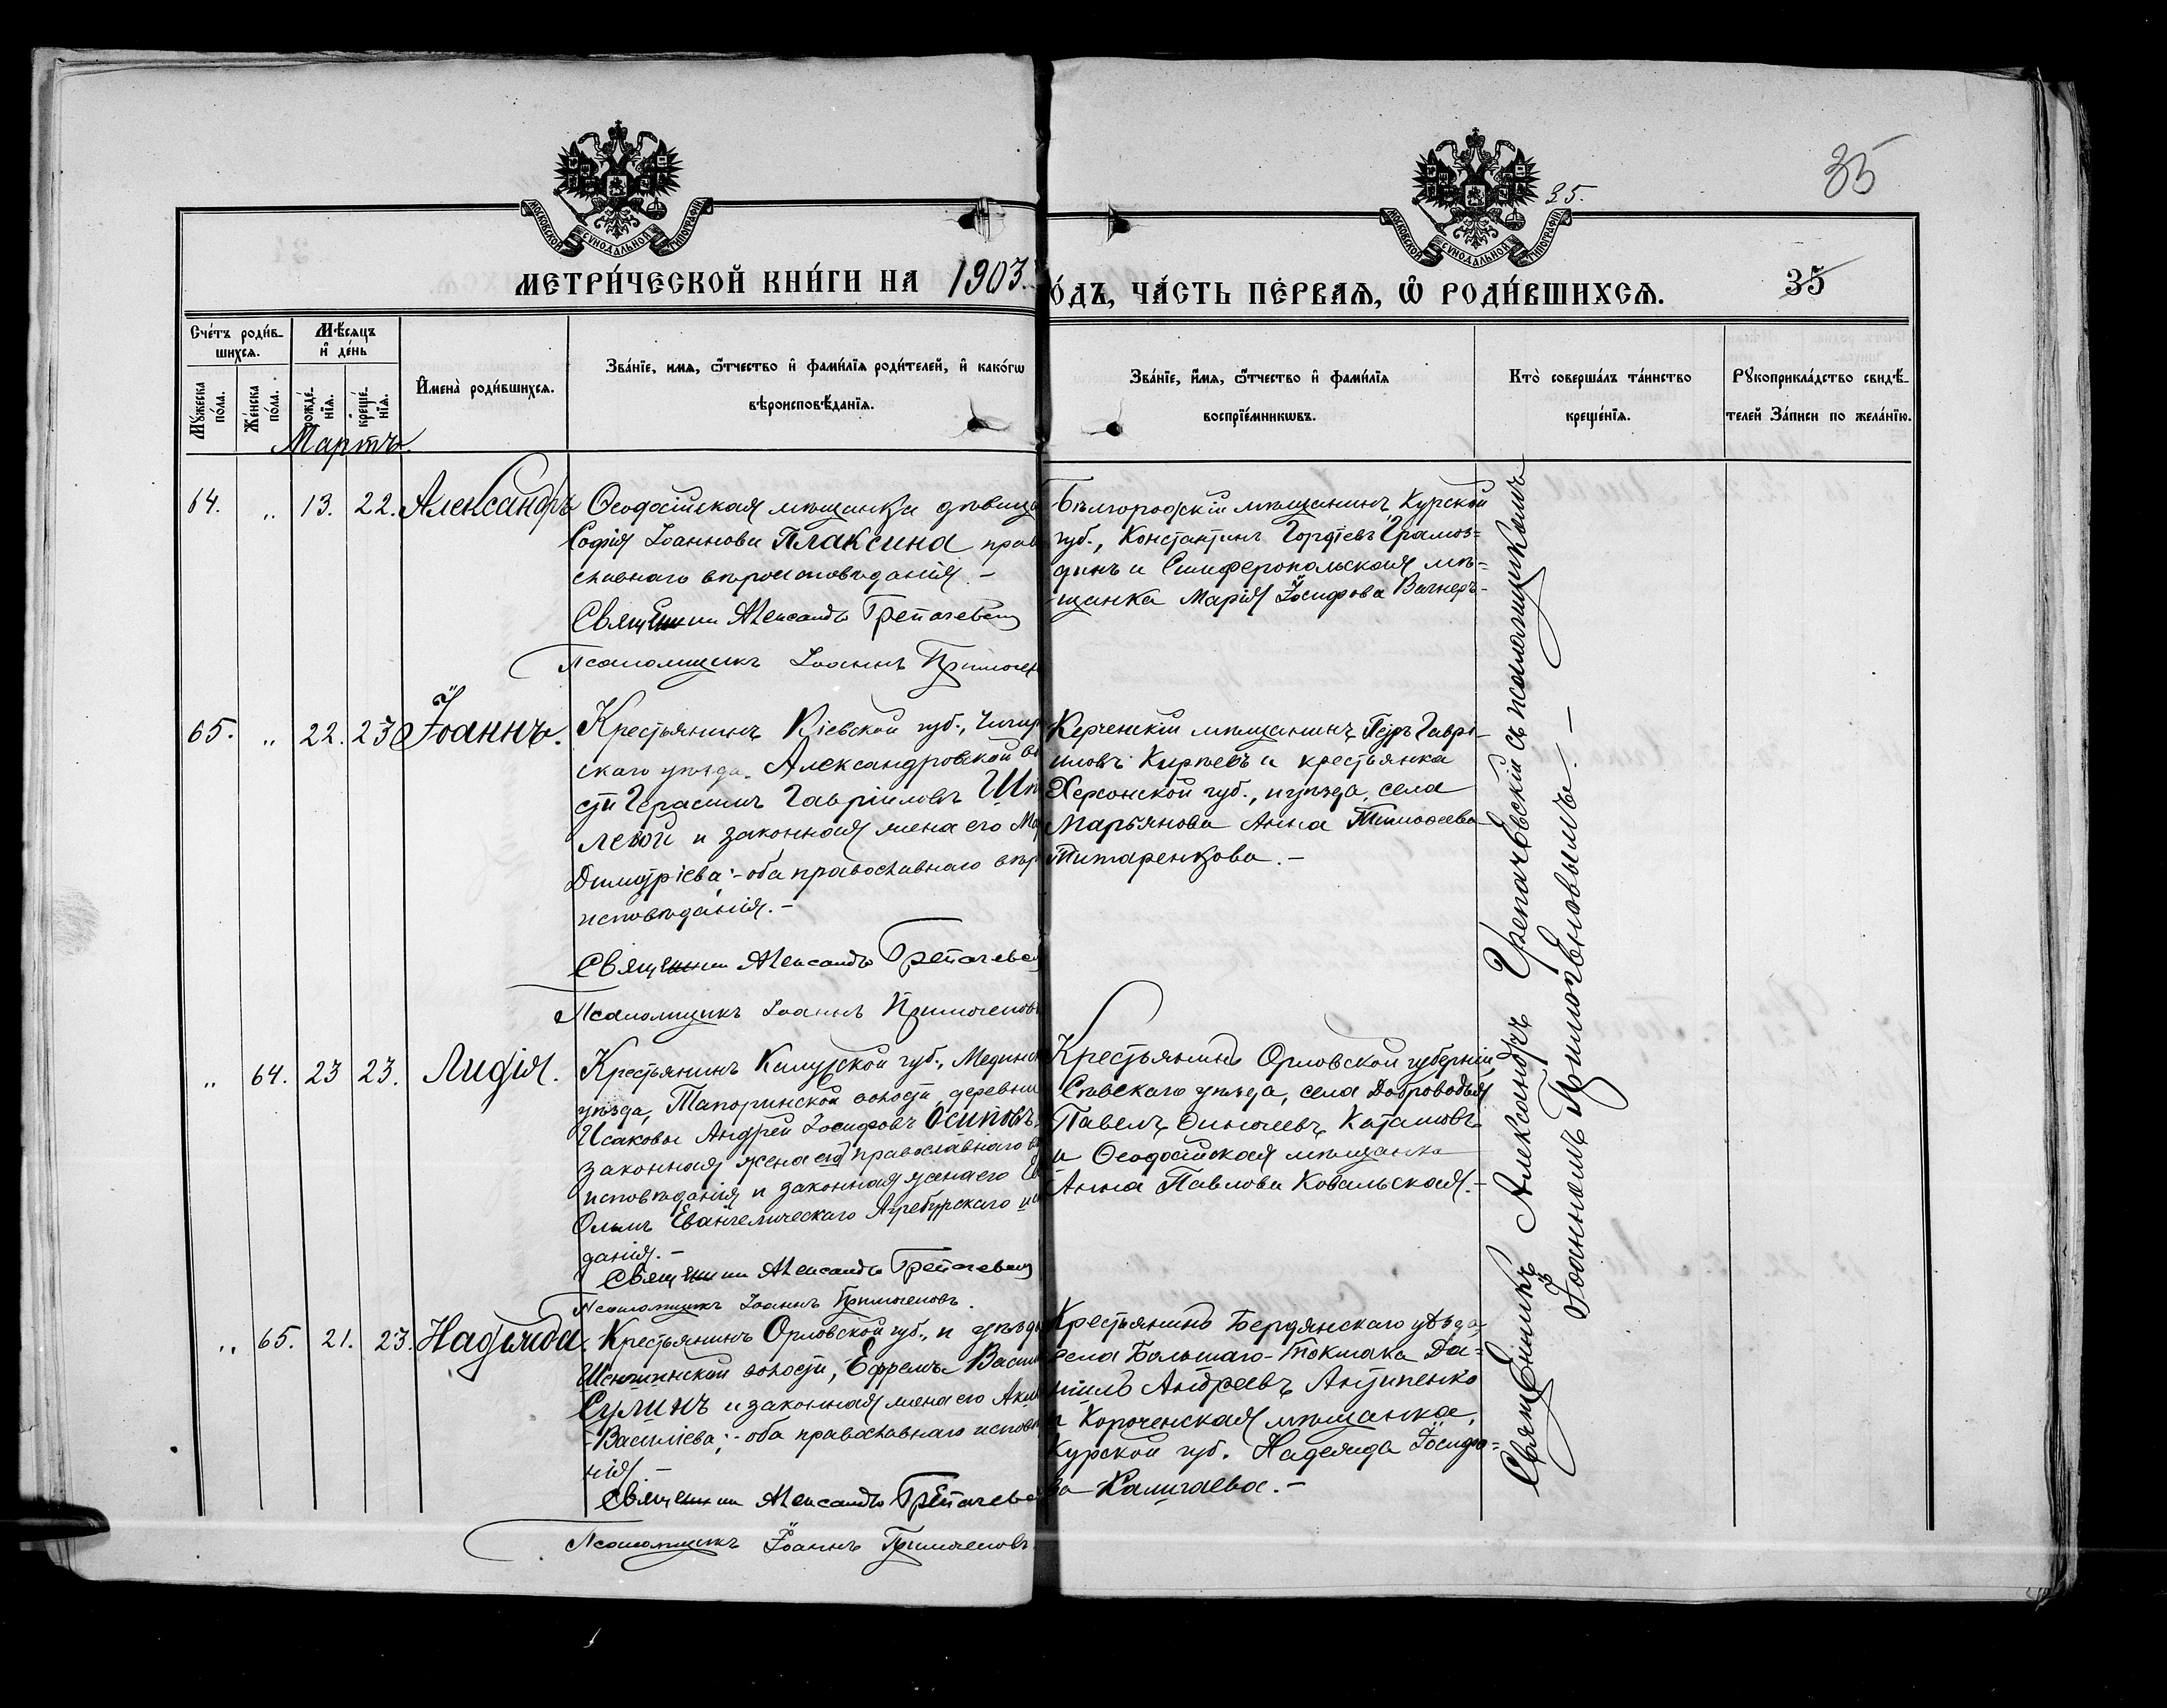 35
35.
МОСКОВСКОЙ СУНОДАЛЬНОЙ ТИПОГРАФІИ
МОСКОВСКОЙ СУНОДАЛЬНОЙ ТИПОГРАФІИ
МЕТРИ́ЧЕСКОЙ КНИ́ГИ НА 1903.
О́ДЪ, ЧА́СТЬ ПЕ́РВАЯ, Ѡ҆ РОДИ́ВШИХСЯ.
35
Сче́тъ роди́в-
шихся.
Мѣ́сяцъ
и҆ де́нь
Му́жеска по́ла.
Же́нска по́ла.
рожде́-
нїя.
креще́-
нїя.
И҆мена̀ роди́вшихся.
Зва́нїе, имя, ѻ҆́тчество и҆ фами́лїя роди́телей, и҆ како́гѡ
вѣроисповѣ́данїя.
Зва́нїе, и҆́мя, ѻ҆́тчество и҆ фами́лїя
воспрїе́мникѡвъ.
Кто̀ соверша́лъ та́инство
креще́нїя.
Рꙋкоприкла́дство свидѣ́-
телей За́писи по жела́нїю.
Мартъ.
64. „ 13. 22. Александръ
Ѳеодосійская мѣщанка дѣвица
Софія Іоаннова Плаксина прав
славнаго вѣроисповѣданія. –
Священни Александръ
Псаломщикъ Іоаннъ
Бѣлгородскій мѣщанинъ, Курской
губ., Константинъ Гордѣевъ Грамоз=
динъ и Симферопольская мѣ=
щанка Марія Іосифова Вагнеръ-
65. „ 22. 23 Іоаннъ.
Крестьянинъ Кіевской губ., Чигир
скаго уѣзда, Александровской во
сти Герасимъ Гавріиловъ
левой и законная жена его Ма
Димитріева; – оба православнаго вѣр
исповѣданія. –
Священни Александръ
Псаломщикъ Іоаннъ
Керченскій мѣщанинъ, Петръ Гаврі-
иловъ Кирѣевъ и крестьянка
Херсонской губ., и уѣзда, села
Марьянова Анна Тимоѳеева
Титаренкова. –
„ 64. 23 23. Лидія.
Крестьянинъ Калужской губ., Медынск
уѣзда, Тапоринской волости, деревни
Исаковы Андрей Іосифовъ Осиповъ,
законная жена его православнаго в
исповѣданія и законная жена его
Евангелическаго
данія. –
Священни Александръ
Псаломщикъ Іоаннъ
Крестьянинъ Орловской губерніи,
Сѣвскаго уѣзда, села Доброводья
Павелъ Каташовъ
и Ѳеодосійская мѣщанка
Анна Павлова Ковальская. –
„ 65. 21. 23. Надежда.
Крестьянинъ Орловской губ., и уѣзда
волости, Ефремъ Васил
Сулинъ и законная жена его Аки
Василіева; – оба православнаго исповѣ
нія. –
Священни Александръ
Псаломщикъ Іоаннъ
Крестьянинъ Бердянскаго уѣзда,
села Большаго-Токмака Да=
ніилъ Андреевъ Антипенко
и Короченская мѣщанка,
Курской губ. Надежда Іосифо=
ва Калигаева. –
Священникъ Александръ Грепачевскій съ псаломщикомъ
Іоанномъ Примогеновымъ. –